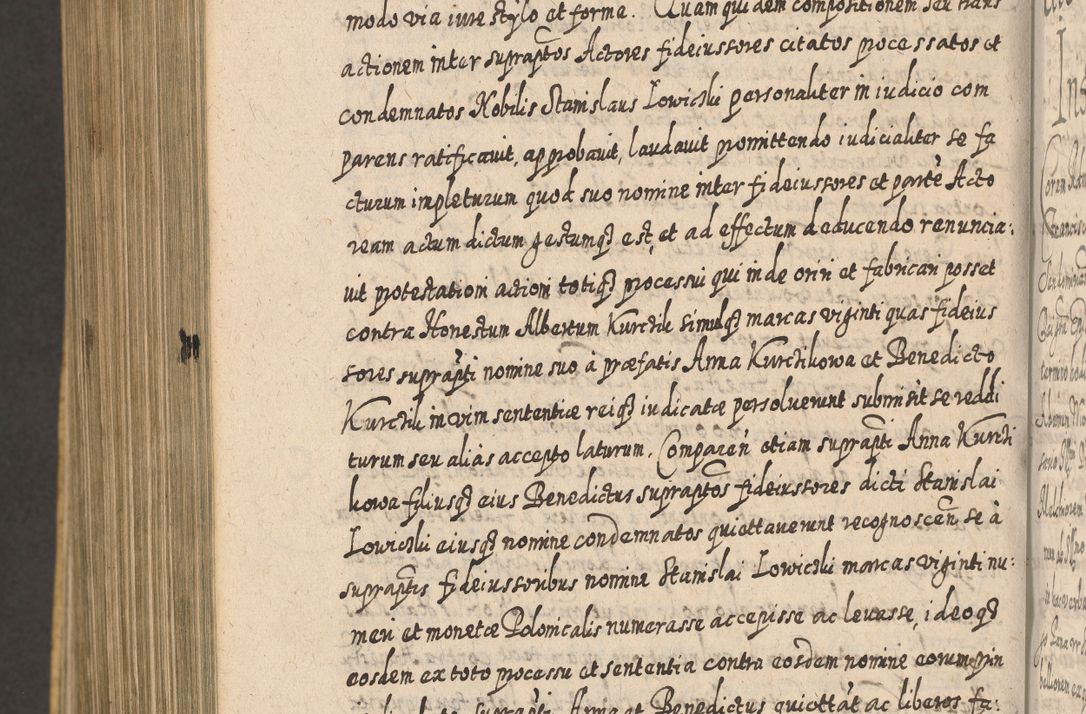 modo via iure stylo et forma. Quam quidem compositionem seu trans
actionem inter supraptos Actores fideiussores citatos processatos et
condemnatos Nobilis Stanislaus Lowicski personaliter in iudicio com
parens ratificavit, approbavit, laudavit promittendo iudicialiter se fa
cturum impleturum quod suo nomine inter fideiussores et parte Acto
ream actum dictum gestumq3 est, et ad effectum deducendo renuncia:
vit protestationi actioni totiq3 processui qui inde oriri et fabricari posset
contra Honestum Albertum Kurchik simulq3 marcas viginti quas fideius
sores suprapti nomine suo à præfatis Anna Kurchikowa et Benedicto
Kurchik in vim sententiæ reiq3 iudicatæ persoluerunt submisit se reddi
turum seu alias accepto laturum. Comparen etiam suprapti Anna Kurchi
kowa filiusq3 eius Benedictus supraptos fideiussores dicti Stanislai
Lowicski eiusq3 nomine condemnatos quiettaverunt recognoscen se à
supraptis fideiussoribus nomine Stanislai Lowicski marcas viginti nu:
meri et monetæ Polonicalis numerasse accepisse ac levasse, ideoq3
eosdem ex toto processu et sententia contra eosdem nomine eorum prin
suprapti Anna et Benedictus quiettat ac liberos fa: